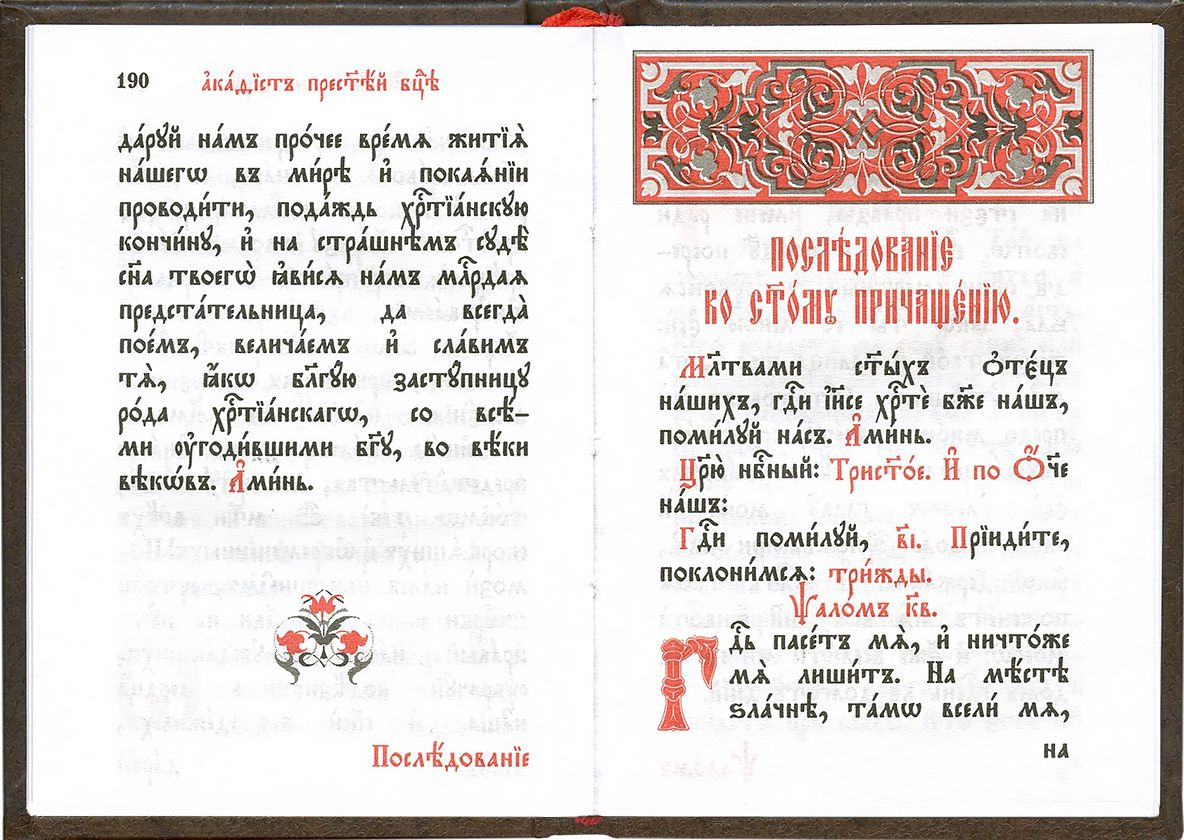 190
а҆ка́ѳїстъ прест҃ѣ́й бц҃ѣ
да́рꙋй на́мъ про́чее вре́мѧ житїѧ̀
на́шегѡ въ ми́рѣ и҆ покаѧ́нїи
проводи́ти, пода́ждь хрⷭ҇тїа́нскꙋю
кончи́нꙋ, и҆ на стра́шнѣмъ сꙋдѣ̀
сн҃а твоегѡ̀ ꙗ҆ви́сѧ на́мъ млⷭ҇рдаѧ
предста́тельница, да всегда̀
пое́мъ, велича́емъ и҆ сла́вимъ
тѧ̀, ꙗ҆́кѡ бл҃гꙋ́ю застꙋ́пницꙋ
ро́да хрⷭ҇тїа́нскагѡ, со всѣ́-
ми ᲂу҆годи́вшими бг҃ꙋ, во вѣ́ки
вѣкѡ́въ. А҆ми́нь.
Послѣ́дованїе
ПОСЛѢ́ДОВАНЇЕ
КО СТ҃О́МꙊ ПРИЧАЩЕ́НЇЮ.
Мл҃твами ст҃ы́хъ ѻ҆те́цъ
на́шихъ, гдⷭ҇и і҆и҃се хрⷭ҇тѐ бж҃е на́шъ,
поми́лꙋй на́съ. А҆ми́нь.
Цр҃ю̀ нбⷭ҇ный: Трист҃о́е. И҆ по Ѻ҆́ч҃е
на́шъ:
Гдⷭ҇и поми́лꙋй, в҃і. Прїиди́те,
поклони́мсѧ: три́жды.
Ѱало́мъ к҃в.
Гдⷭ҇ь пасе́тъ мѧ̀, и҆ ничто́же
мѧ̀ лиши́тъ. На мѣ́стѣ
ѕла́чнѣ, та́мѡ всели́ мѧ,
на